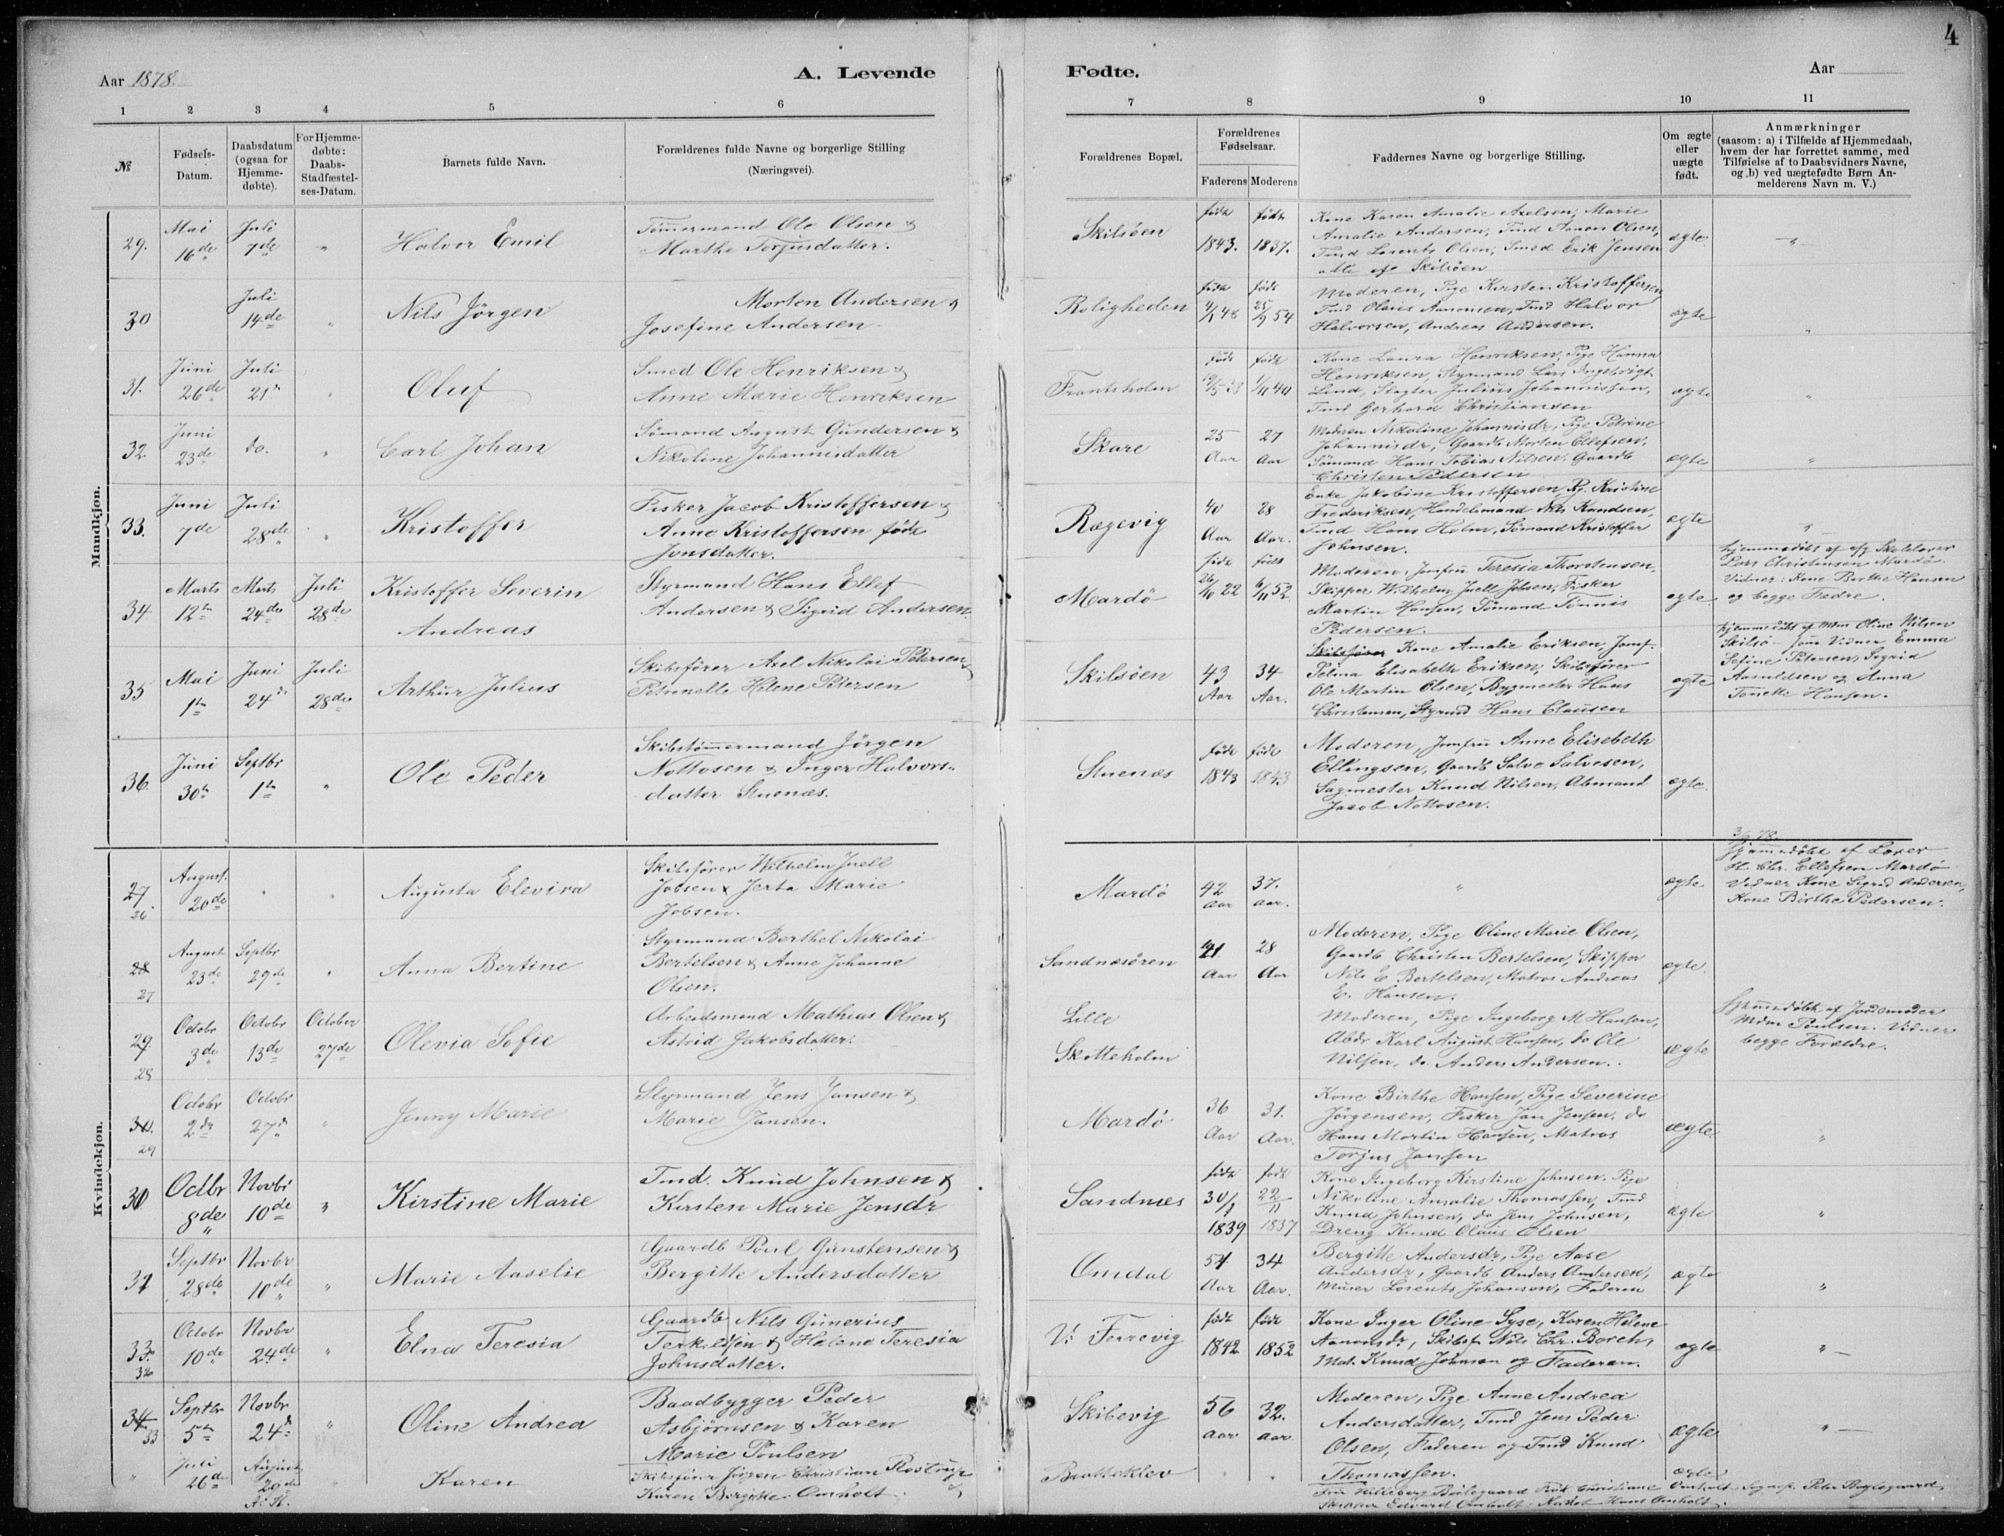 4
Aar 1878.
A. Levende
Fødte.
Aar
1 2 3 4 5 6 7 8 9 10 11
№
Fødsels-
Datum.
Daabsdatum
(ogsaa for
Hjemme-
døbte).
For Hjemme-
døbte:
Daabs-
Stadfæstel-
ses-Datum.
Barnets fulde Navn.
Forældrenes fulde Navne og borgerlige Stilling
(Næringsvei).
Forældrenes Bopæl.
Forældrenes
Fødselsaar.
Faderens Moderens
Faddernes Navne og borgerlige Stilling.
Om ægte
eller
uægte
født.
Anmærkninger
(saasom: a) i Tilfælde af Hjemmedaab,
hvem der har forrettet samme, med
Tilføielse af to Daabsvidners Navne,
og b) ved uægtefødte Børn An-
melderens Navn m. V.)
Mandkjøn.
29.
Mai
16de
Juli
7de
"
Halvor Emil
Tømmermand Ole Olsen &
Marthe Torjusdatter.
Skilsöen
født
1843.
født
1837.
Kone Karen Amalie Axelsen, Marie
Amalie Andersen, Tmd Aanon Olsen,
Tmd Lorents Olsen, Smed Erik Jensen
alle af Skilsöen
ægte.
"
30
Juli
14de
"
Nils Jörgen
Morten Andersen &
Josefine Andersen.
Roligheden
født
48
født
25/9 54
Moderen, Pige Kirsten Kristoffersen,
Tmd Olaus Aanonsen, Tmd Halvor
Halvorsen, Andreas Andersen.
ægte
"
31.
Juni
26de
Juli
21
Oluf
Smed Ole Henriksen &
Anne Marie Henriksen
Frantsholm
født
38
født
40
Kone Laura Henriksen, Pige Hanna
Henriksen, Styrmand Lars Ingebrigt
Lind, Slagter Julius Johannissen,
Tmd Gerhard Christiansen
ægte
"
32.
Juni
23de
do.
"
Carl Johan
Sömand August Gundersen &
Nikoline Johannisdatter
Skare
25
Aar
27
Aar
Moderen Nikoline Johannisdr, Pige Petrine
Johannisdr, Gaardb Morten Ellefsen,
Sömand Hans Tobias Nilsen, Gaardb
Christen Pedersen
ægte
"
33.
Juni
7de
Juli
28de
"
Kristoffer
Fisker Jacob Kristoffersen &
Anne Kristoffersen født
Jonsdatter.
Rægevig
40
Aar
28
Aar.
Enke Jakobine Kristoffersen, Pg. Kristine
Frederiksen, Handelsmand Nils Knudsen,
Tmd Hans Holm, Sömand Kristoffer
Johnsen.
ægte
"
34.
Marts
12te
Marts
24de
Juli
28de
Kristoffer Severin
Andreas
Styrmand Hans Ellef
Andersen & Sigrid Andersen.
Mardö
født
22
født
52.
Moderen, Jomfru Teresia Thorstensen,
Skipper Wilhelm Juell Jobsen, Fisker
Martin Hansen, Sömand Tönnis
Pedersen.
ægte.
Hjemmedöbt af afg Skolelærer
Lars Christensen Mardö.
Vidner: Kone Berthe Hansen
og begge Fædre.
35
Mai
1te
Juni
24
Juli
28de
Arthur Julius
Skibsförer Axel Nikolai Petersen &
Petronelle Helene Petersen
Skilsöen
43
Aar
34
Aar.
Kone Amalie Eriksen, Jomf.
Telma Elisabeth Eriksen, Skibsförer
Ole Martin Olsen, Bygmester Hans
Christensen, Styrmd Hans Clausen
ægte
Hjemmedöbt af Mdm Oline Nilsen
Skilsö som Vidner Emma
Sefine Petersen, Sigrid
Asmildsen og Anna
Tonette Hansen.
36.
Juni
30te
Septbr
1te
"
Ole Peder
Skibstömmermand Jörgen
Nottosen & Inger Halvors-
datter Stuenæs.
Stuenæs
født
1843
født
1843
Moderen, Jomfru Anne Elisebeth
Ellingsen, Gaardb Salve Salvesen,
Sagmester Knud Nilsen, Abmand
Jacob Nottosen.
ægte.
Kvindekjøn.
27
26.
August.
20de
"
"
Augusta Elevira
Skibsförer Wilhelm Juell
Jobsen & Jerta Marie
Jobsen.
Mardö
42
aar
37.
aar.
"
ægte
Hjemmedöbt af Lærer
St. Chr. Ellefsen Mardö
Vidner Kone Sigrid Andersen,
Kone Birthe Pedersen.
28
27
August
23de
Septbr
29de
"
Anna Bertine
Styrmand Berthel Nikolai
Bertelsen & Anne Johanne
Olsen.
Sandnæsören
Aar
28
Aar
Moderen, Pige Oline Marie Olsen,
Gaardb Christen Bertelsen, Skipper
Nils E. Bertelsen, Matros Andreas
E. Hansen.
ægte.
29
28
Octobr
3de
Octobr
13de
October
27de
Olevia Sofie
Arbeidsmand Mathias Olsen &
Astrid Jakobsdatter.
Lille
Skotteholm
Moderen, Pige Ingeborg M Hansen,
Abdr Karl August Hansen, do Ole
Nilsen, do. Anders Andersen.
ægte
Hjemmedöbt af Jordemoder
Mdm Poulsen. Vidner
begge Forældre.
30.
29
Octobr
2de
Octobr
27
"
Jenny Marie
Styrmand Jens Jansen &
Marie Jansen.
Mardö
36
Aar
31.
Aar.
Kone Birthe Hansen, Pige Severine
Jörgensen, Fisker Jan Jensen, do
Hans Martin Hansen, Matros
Torjus Jansen
ægte
"
30
Octbr
8de
Novbr
10de
"
Kirstine Marie
Tmd. Knud Johnsen &
Kirsten Marie Jensdr
Sandnæs
født
30/1
1839
født
22/11
1837
Kone Ingeborg Kirstine Johnsen, Pige
Nikoline Amalie Thomassen, Tmd
Knud Johnsen, do Jens Johnsen,
Dreng Knud Olaus Olsen
ægte
"
31
Septbr
28de
Novbr
10de
"
Marie Aaselie
Gaardb Poul Gunstensen &
Bergitte Andersdatter
Omdal
54
Aar
34
Aar.
Bergitte Andersdr, Pige Aase
Andersdr, Gaardb Anders Andersen,
Murer Lorents Johansen, Faderen
ægte
"
33.
32
Octobr
10de
Novbr
24de
"
Elna Teresia
Gaardb Nils Gunerius
Terkelsen & Helene Teresia
Johnsdatter.
V. Ferrevig
født
1842
født
1852
Kone Inger Oline Syse, Karen Helene
Aanonsdr, Skibsf Nils Chr. Borch,
Mat. Knud Johnsen og Faderen.
ægte
"
34
33
Septbr
5te
Novbr
24
"
Oline Andrea
Baadbygger Peder
Asbjörnsen & Karen
Marie Poulsen
Skibevig
56
aar
32.
aar
Moderen, Pige Anne Andrea
Andersdatter, Tmd Jens Peder
Olsen, Faderen og Tmd Knud
Thomassen.
ægte
"
"
Juli
26de
August
20de
"
Karen
Skibsförer Jörgen Christian Rostrup &
Karen Bergitte Omholt.
Baatteklev
"
"
ægte